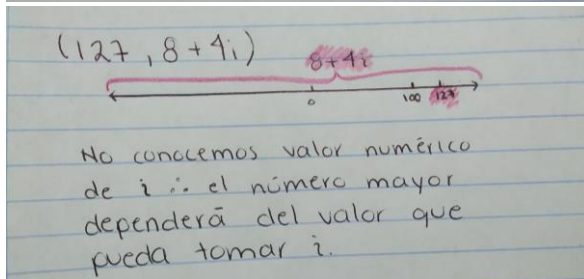 (127, 8+4i)
8+4i
0 100 127
No conocemos valor numérico
de i ∴ el número mayor
dependerá del valor que
pueda tomar i.